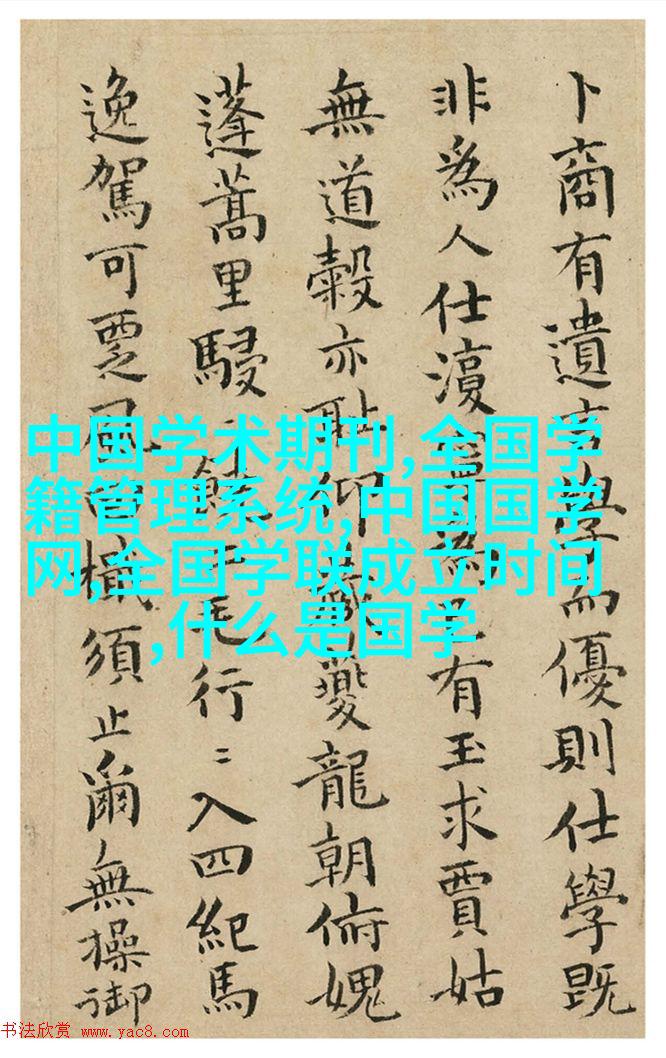 卜商有遺言學而優則仕學既
非為人仕須 為 有玉求賈姑
無道穀亦耻仰 夔龍朝俯媿
蓬蒿里駸 餘 毛行〻入四紀馬
逸駕可覂風 檝須止爾無操御
中国学术期刊,全国学
籍管理系统,中国国学
网,全国学联成立时间
,什么是国学
书法欣赏 www.yac8.com